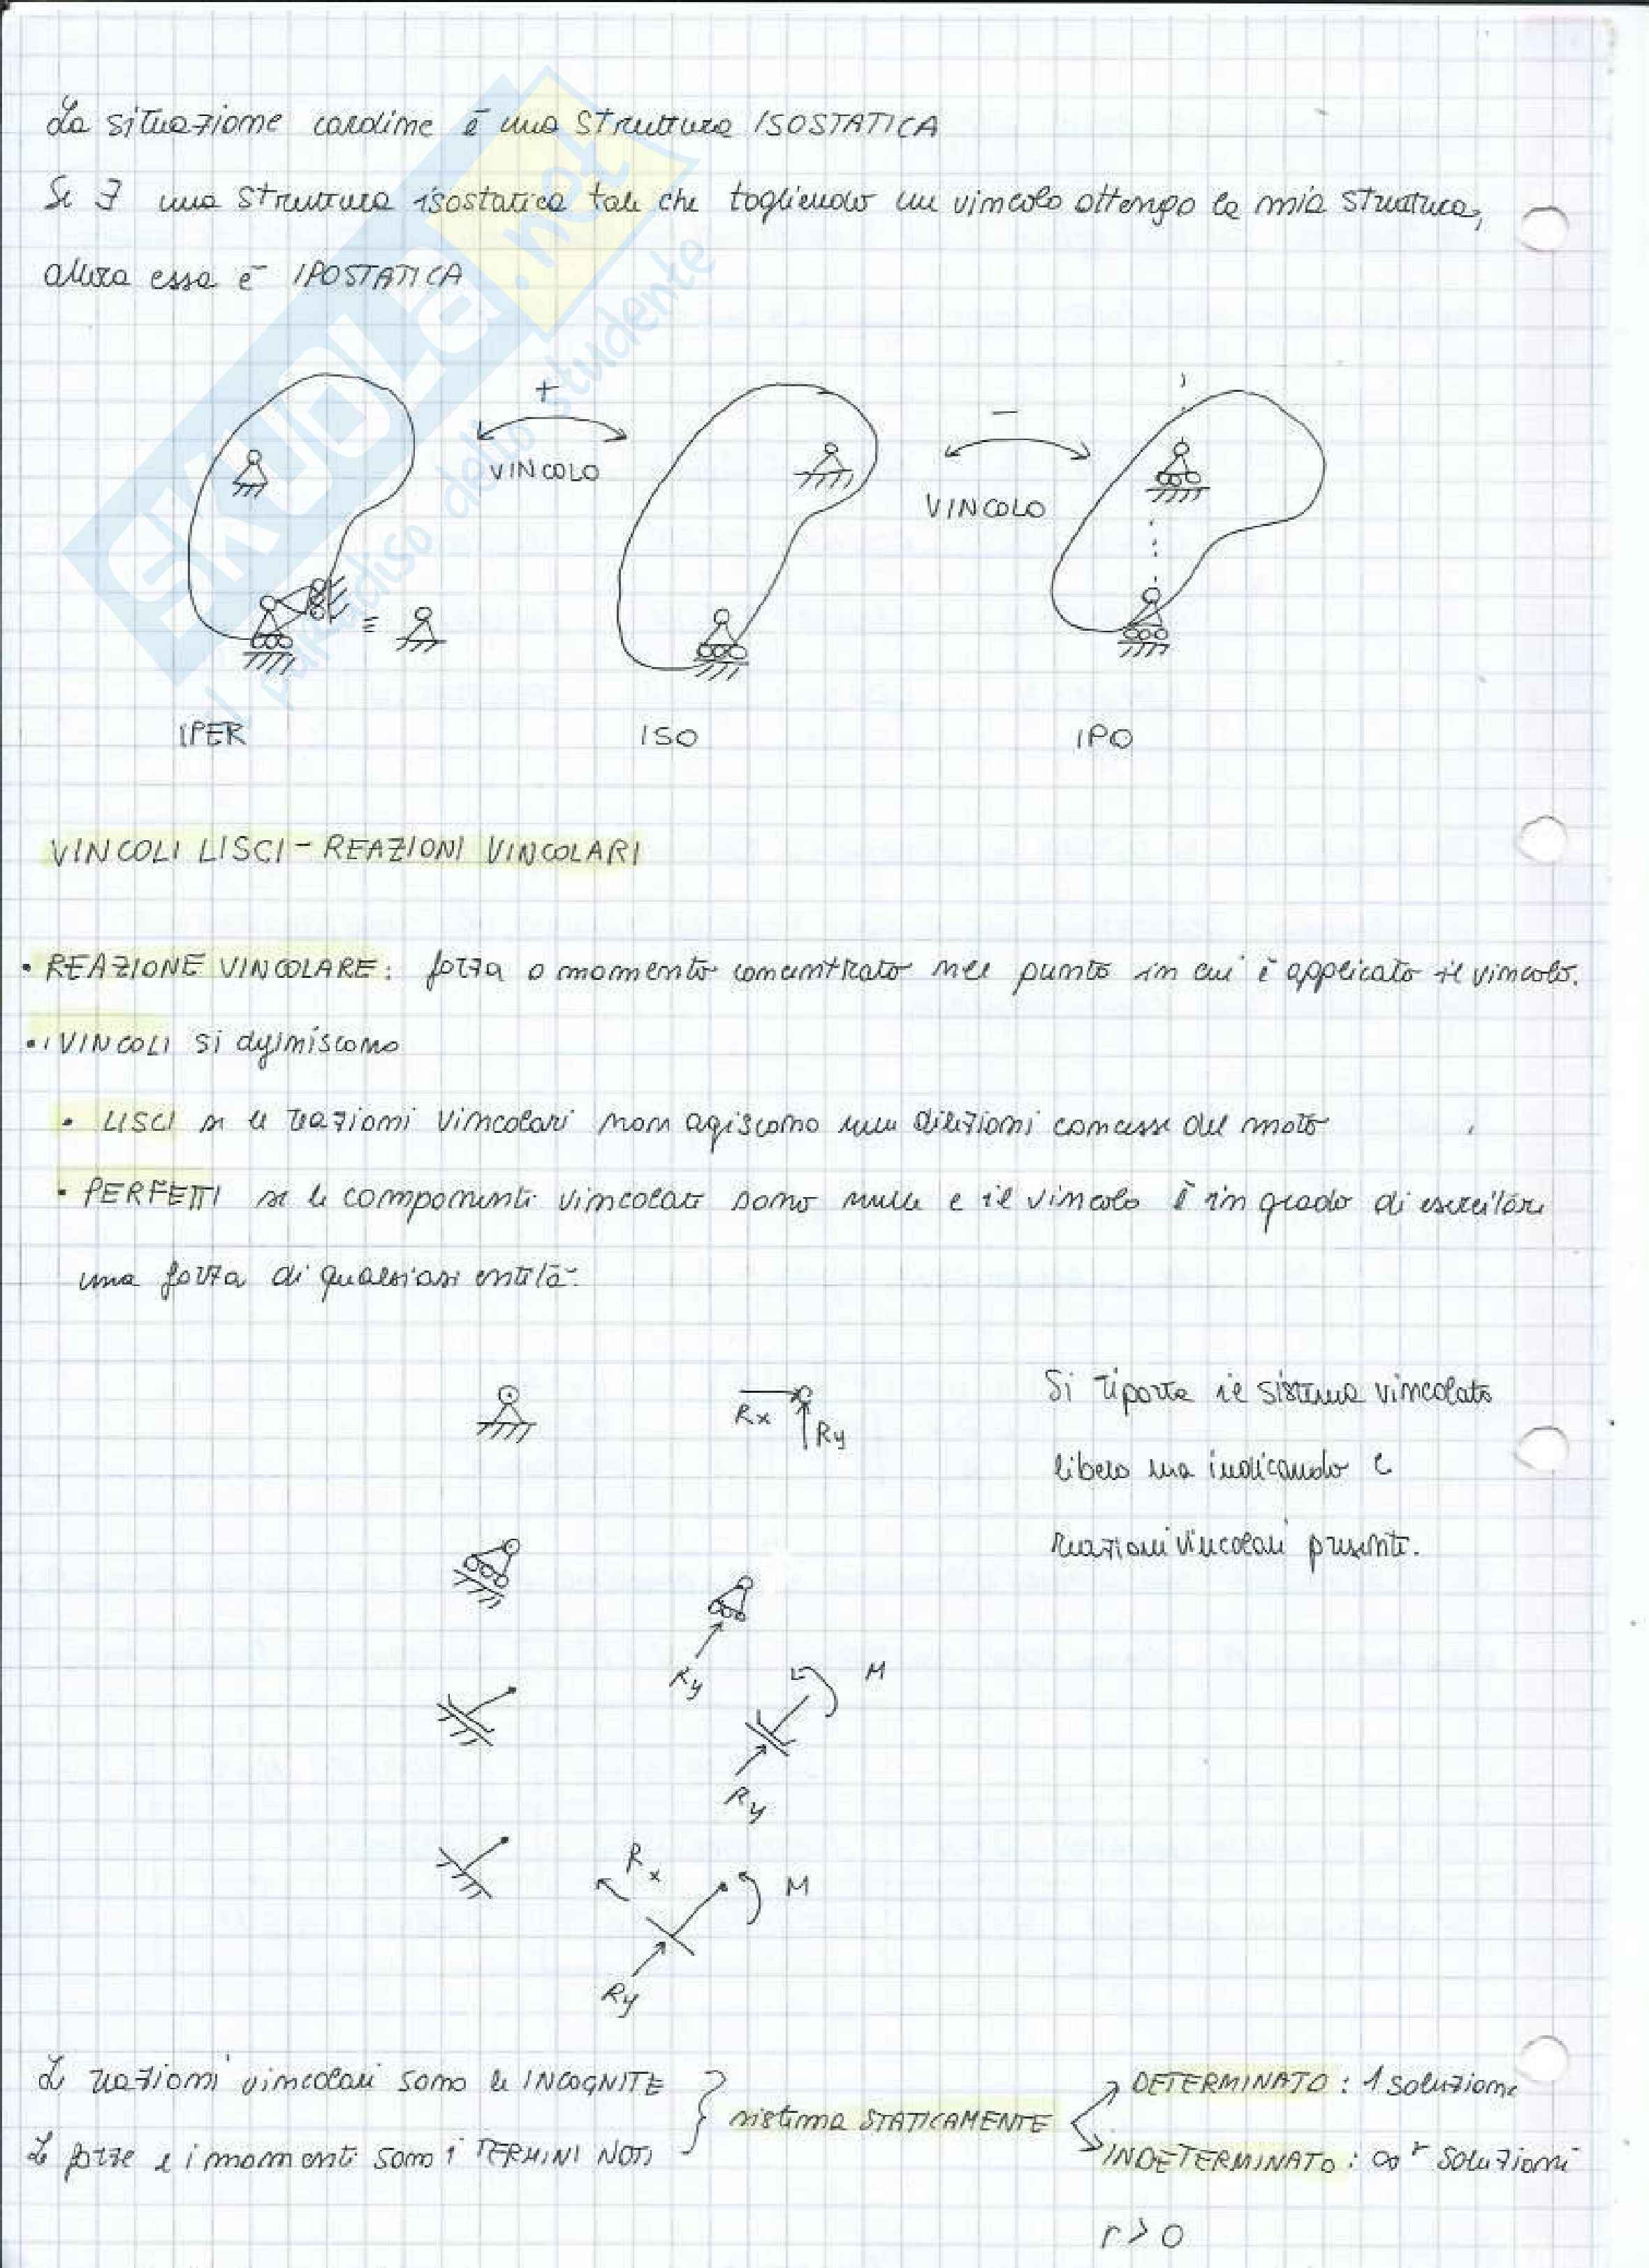 La situazione cardine è una struttura ISOSTATICA
Se ∃ una struttura isostatica tale che togliendo un vincolo ottengo la mia struttura,
allora essa è IPOSTATICA
+
VINCOLO
−
VINCOLO
≡
IPER
ISO
IPO
VINCOLI LISCI - REAZIONI VINCOLARI
• REAZIONE VINCOLARE: forza o momento concentrato nel punto in cui è applicato il vincolo.
• i VINCOLI si definiscono
• LISCI se le reazioni vincolari non agiscono nelle direzioni concesse del moto
• PERFETTI se le componenti vincolate sono nulle e il vincolo è in grado di esercitare
una forza di qualsiasi entità.
Rx
Ry
Si riporta il sistema vincolato
libero ma indicando le
reazioni vincolari presenti.
Ry
M
Ry
Rx
M
Ry
Le reazioni vincolari sono le INCOGNITE
Le forze e i momenti sono i TERMINI NOTI
sistema STATICAMENTE
DETERMINATO: 1 soluzione
INDETERMINATO: ∞^r soluzioni
r > 0
SKUOLA.net
il paradiso dello studente